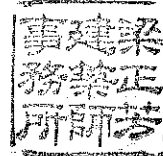 梁正芳
建築師
事務所